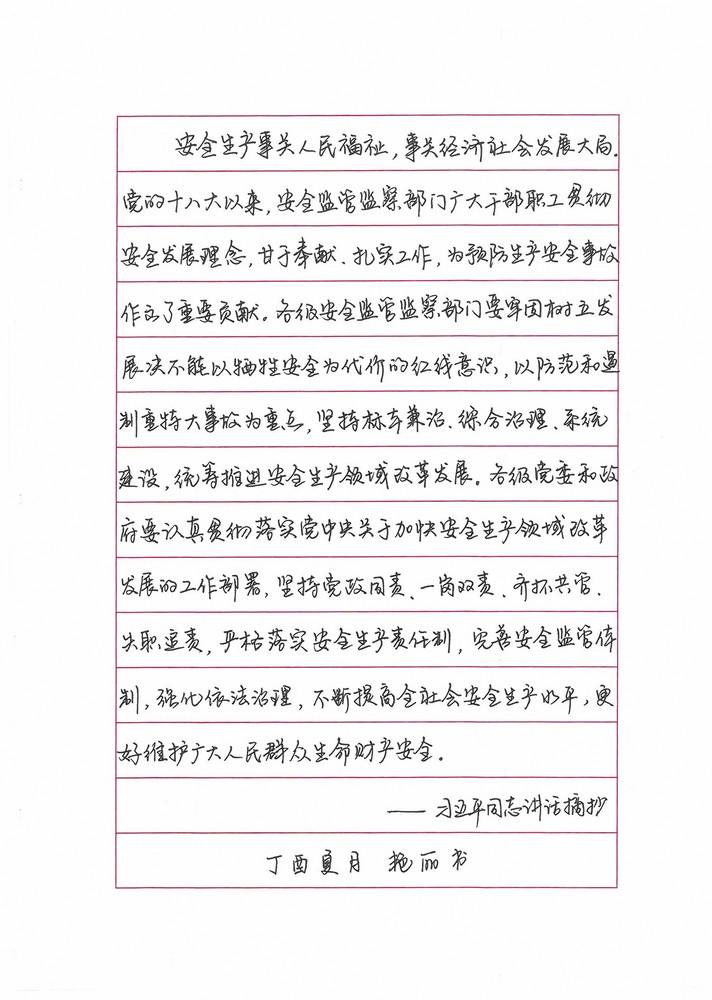 安全生产事关人民福祉，事关经济社会发展大局。
党的十八大以来，安全监管监察部门广大干部职工贯彻
安全发展理念，甘于奉献、扎实工作，为预防生产安全事故
作出了重要贡献。各级安全监管监察部门要牢固树立发
展决不能以牺牲安全为代价的红线意识，以防范和遏
制重特大事故为重点，坚持标本兼治、综合治理、系统
建设，统筹推进安全生产领域改革发展。各级党委和政
府要认真贯彻落实党中央关于加快安全生产领域改革
发展的工作部署，坚持党政同责、一岗双责、齐抓共管、
失职追责，严格落实安全生产责任制，完善安全监管体
制，强化依法治理，不断提高全社会安全生产水平，更
好维护广大人民群众生命财产安全。
——习近平同志讲话摘抄
丁酉夏月 艳丽书